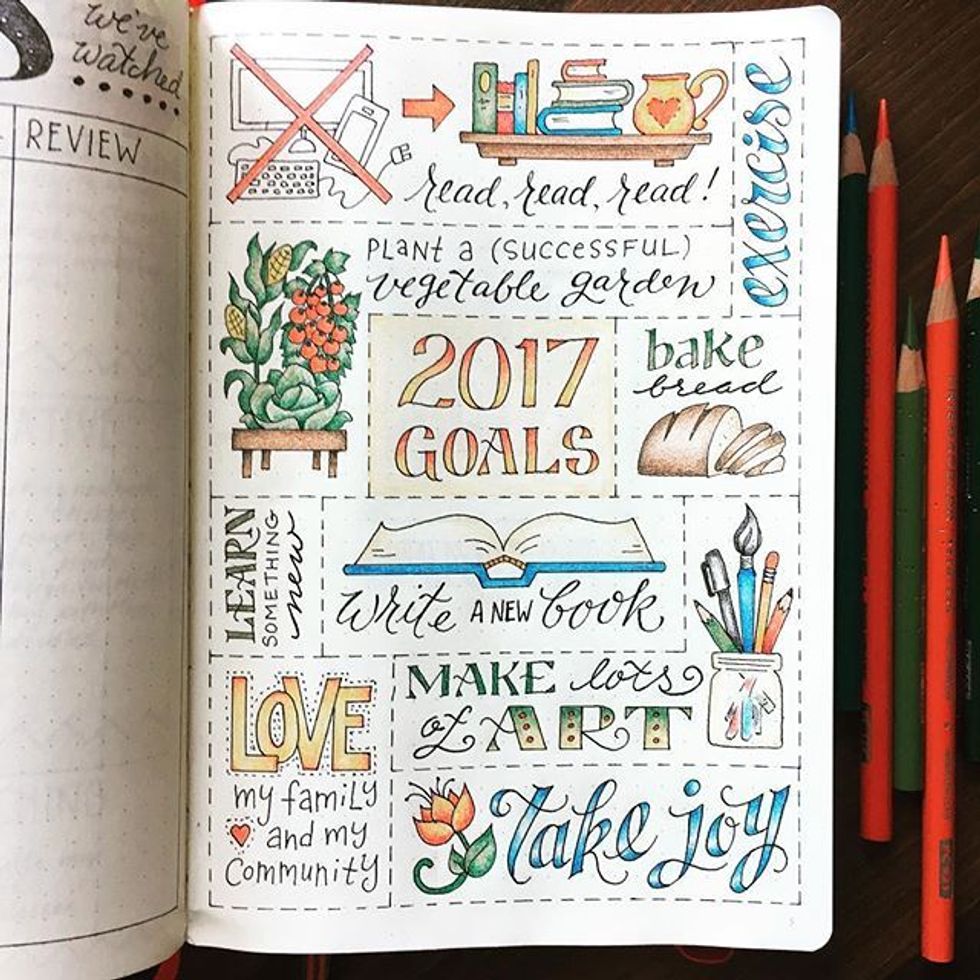 we've
watched
REVIEW
read, read, read!
exercise
PLANT a (SUCCESSFUL)
vegetable garden
2017
GOALS
bake
bread
LEARN
SOMETHING
new
write A NEW book
MAKE lots
of ART
LOVE
my famiLy
and my
Community
Take joy
5